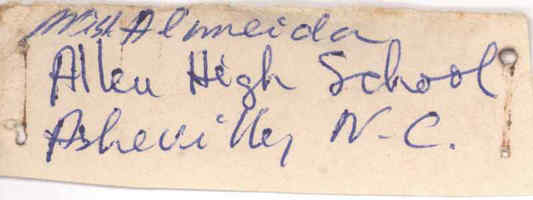 Miss. Almeida
Allen High School
Asheville, N.C.